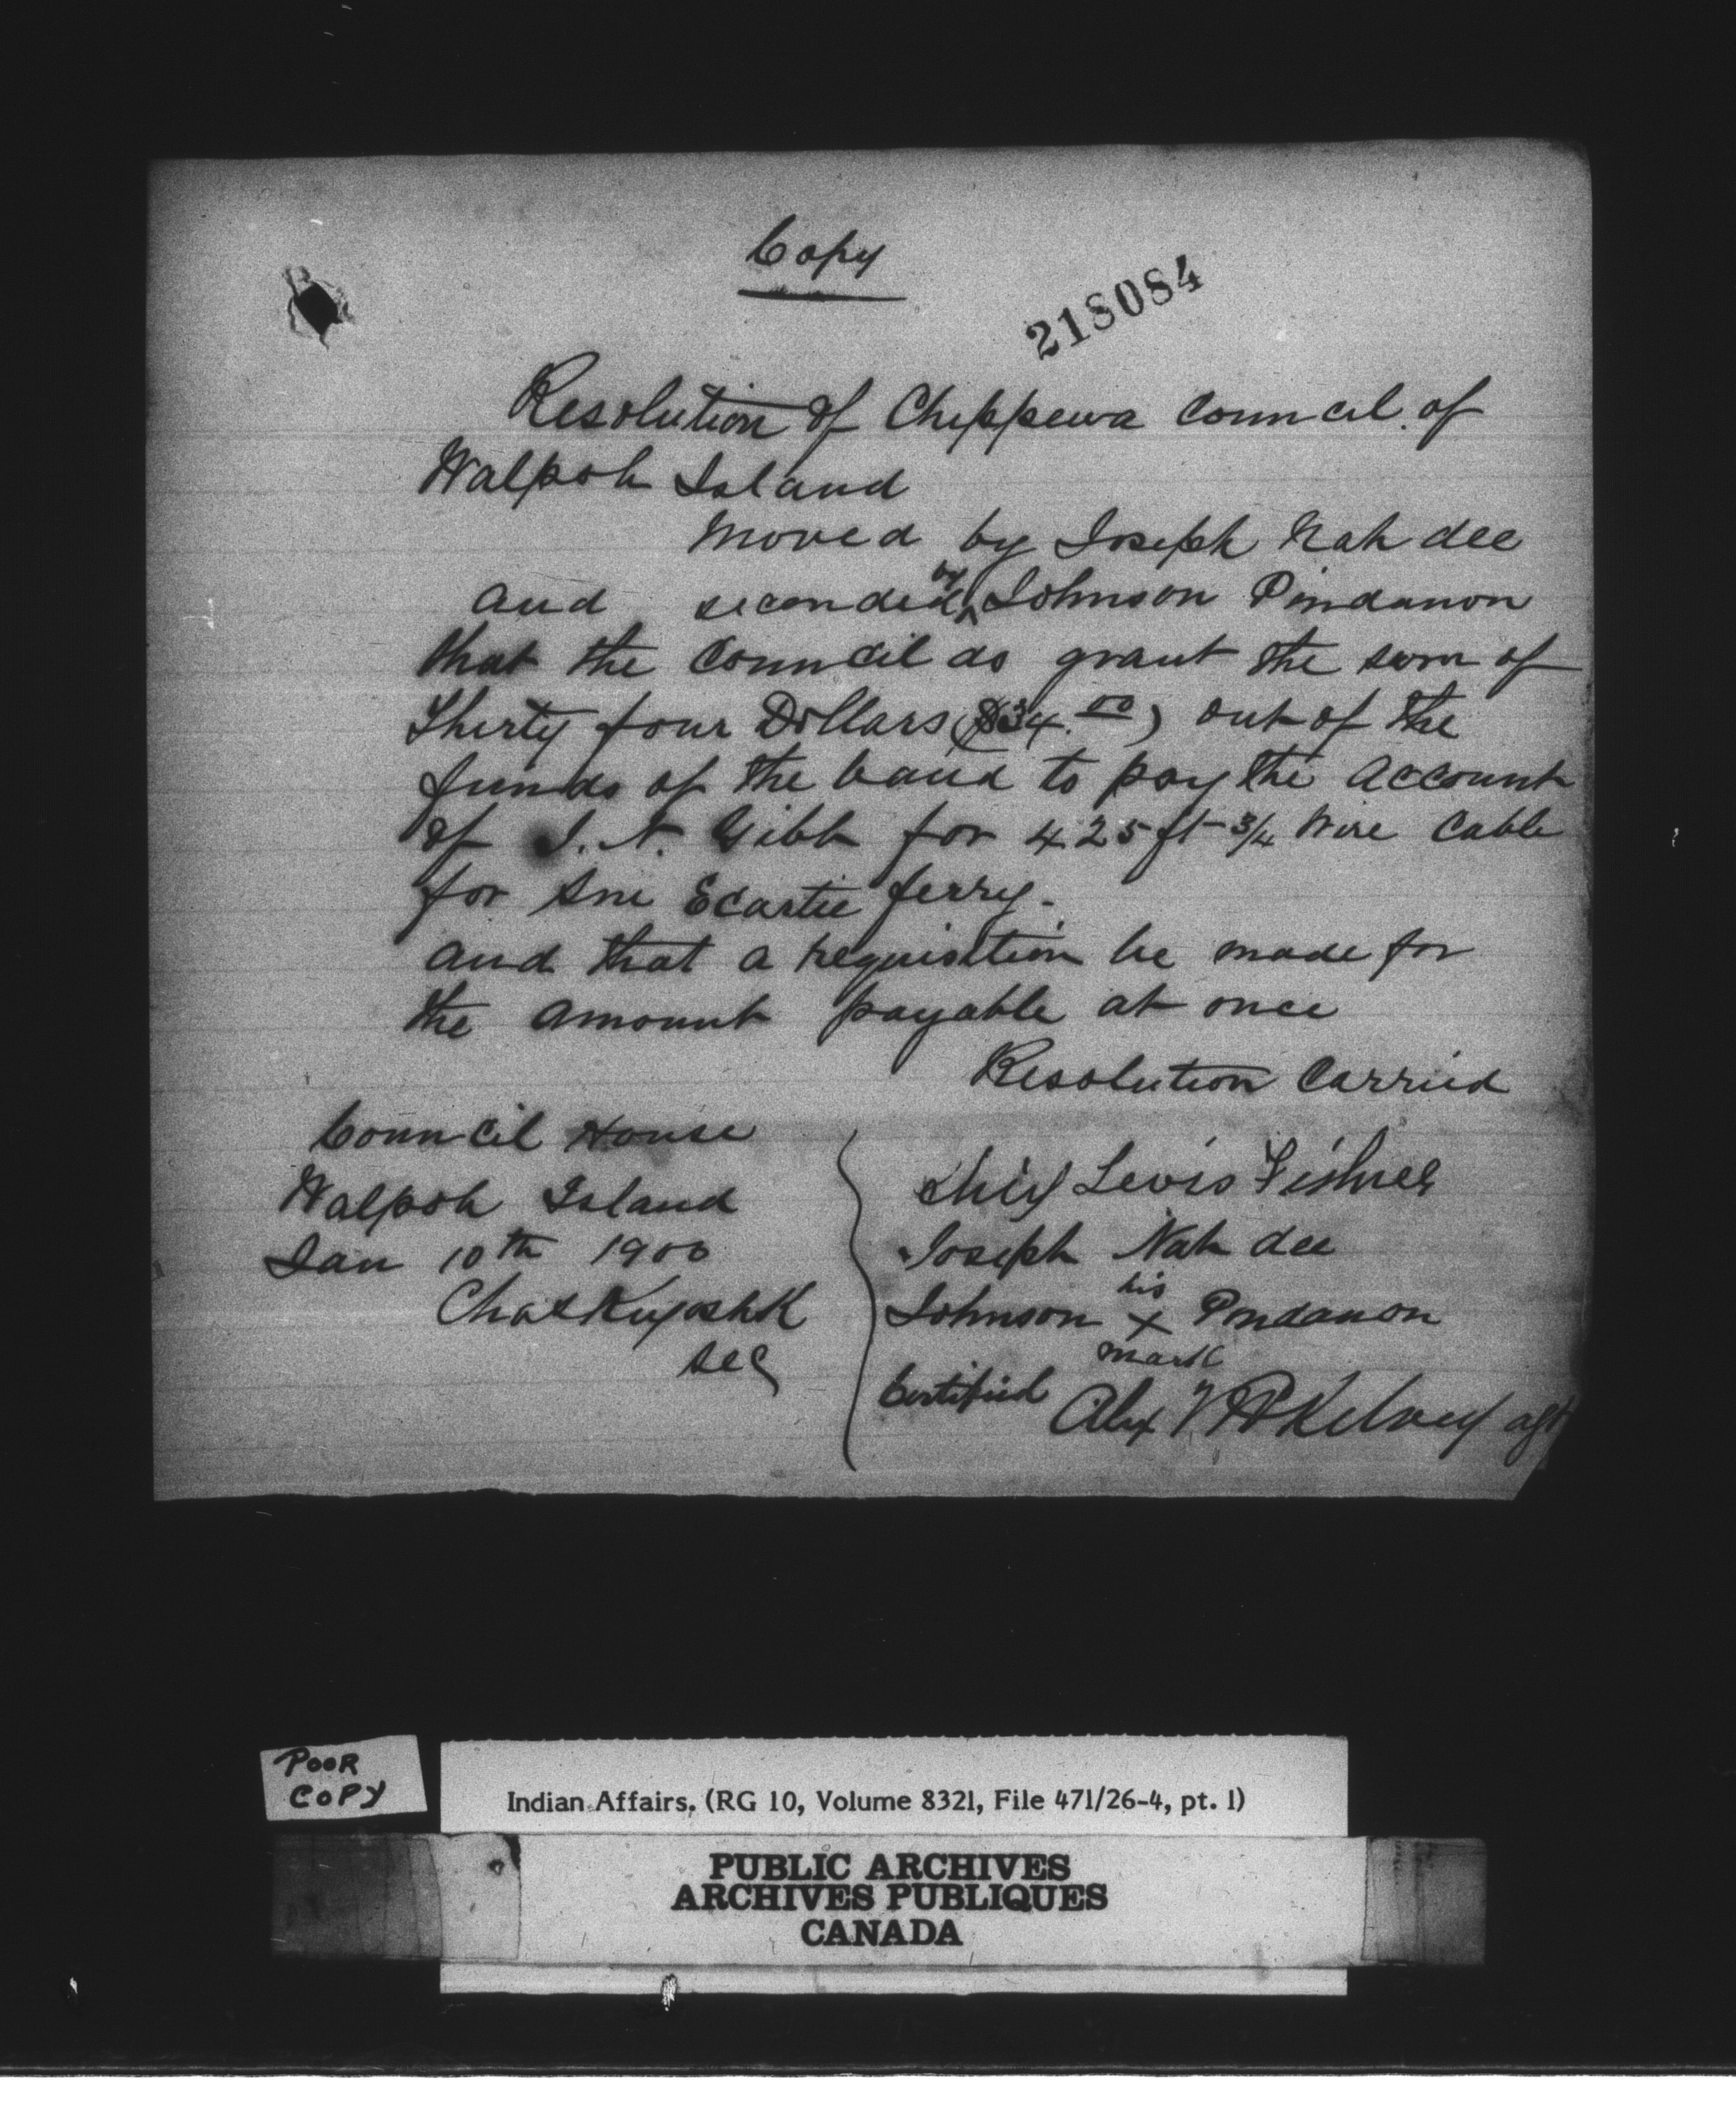 Copy
218084
Resolution of Chippewa Council of
Walpole Island
Moved by Joseph Nah dee
and seconded by Johnson Pindanon
that the Council do grant the sum of
Thirty four Dollars ($34.00) out of the
funds of the band to pay the account
of J. N. Gibb for 425 ft 3/4 Wire Cable
for Sni Ecartie ferry.
and that a requisition be made for
the amount payable at once
Resolution Carried
Council House
Walpole Island
Jan 10th 1900
Chas Kiyoshk
Sec
Chief Levis Fisher
Joseph Nah dee
Johnson his x mark Pindanon
Certified Alex McKelvey agt
POOR
COPY
Indian Affairs. (RG 10, Volume 8321, File 471/26-4, pt. 1)
PUBLIC ARCHIVES
ARCHIVES PUBLIQUES
CANADA